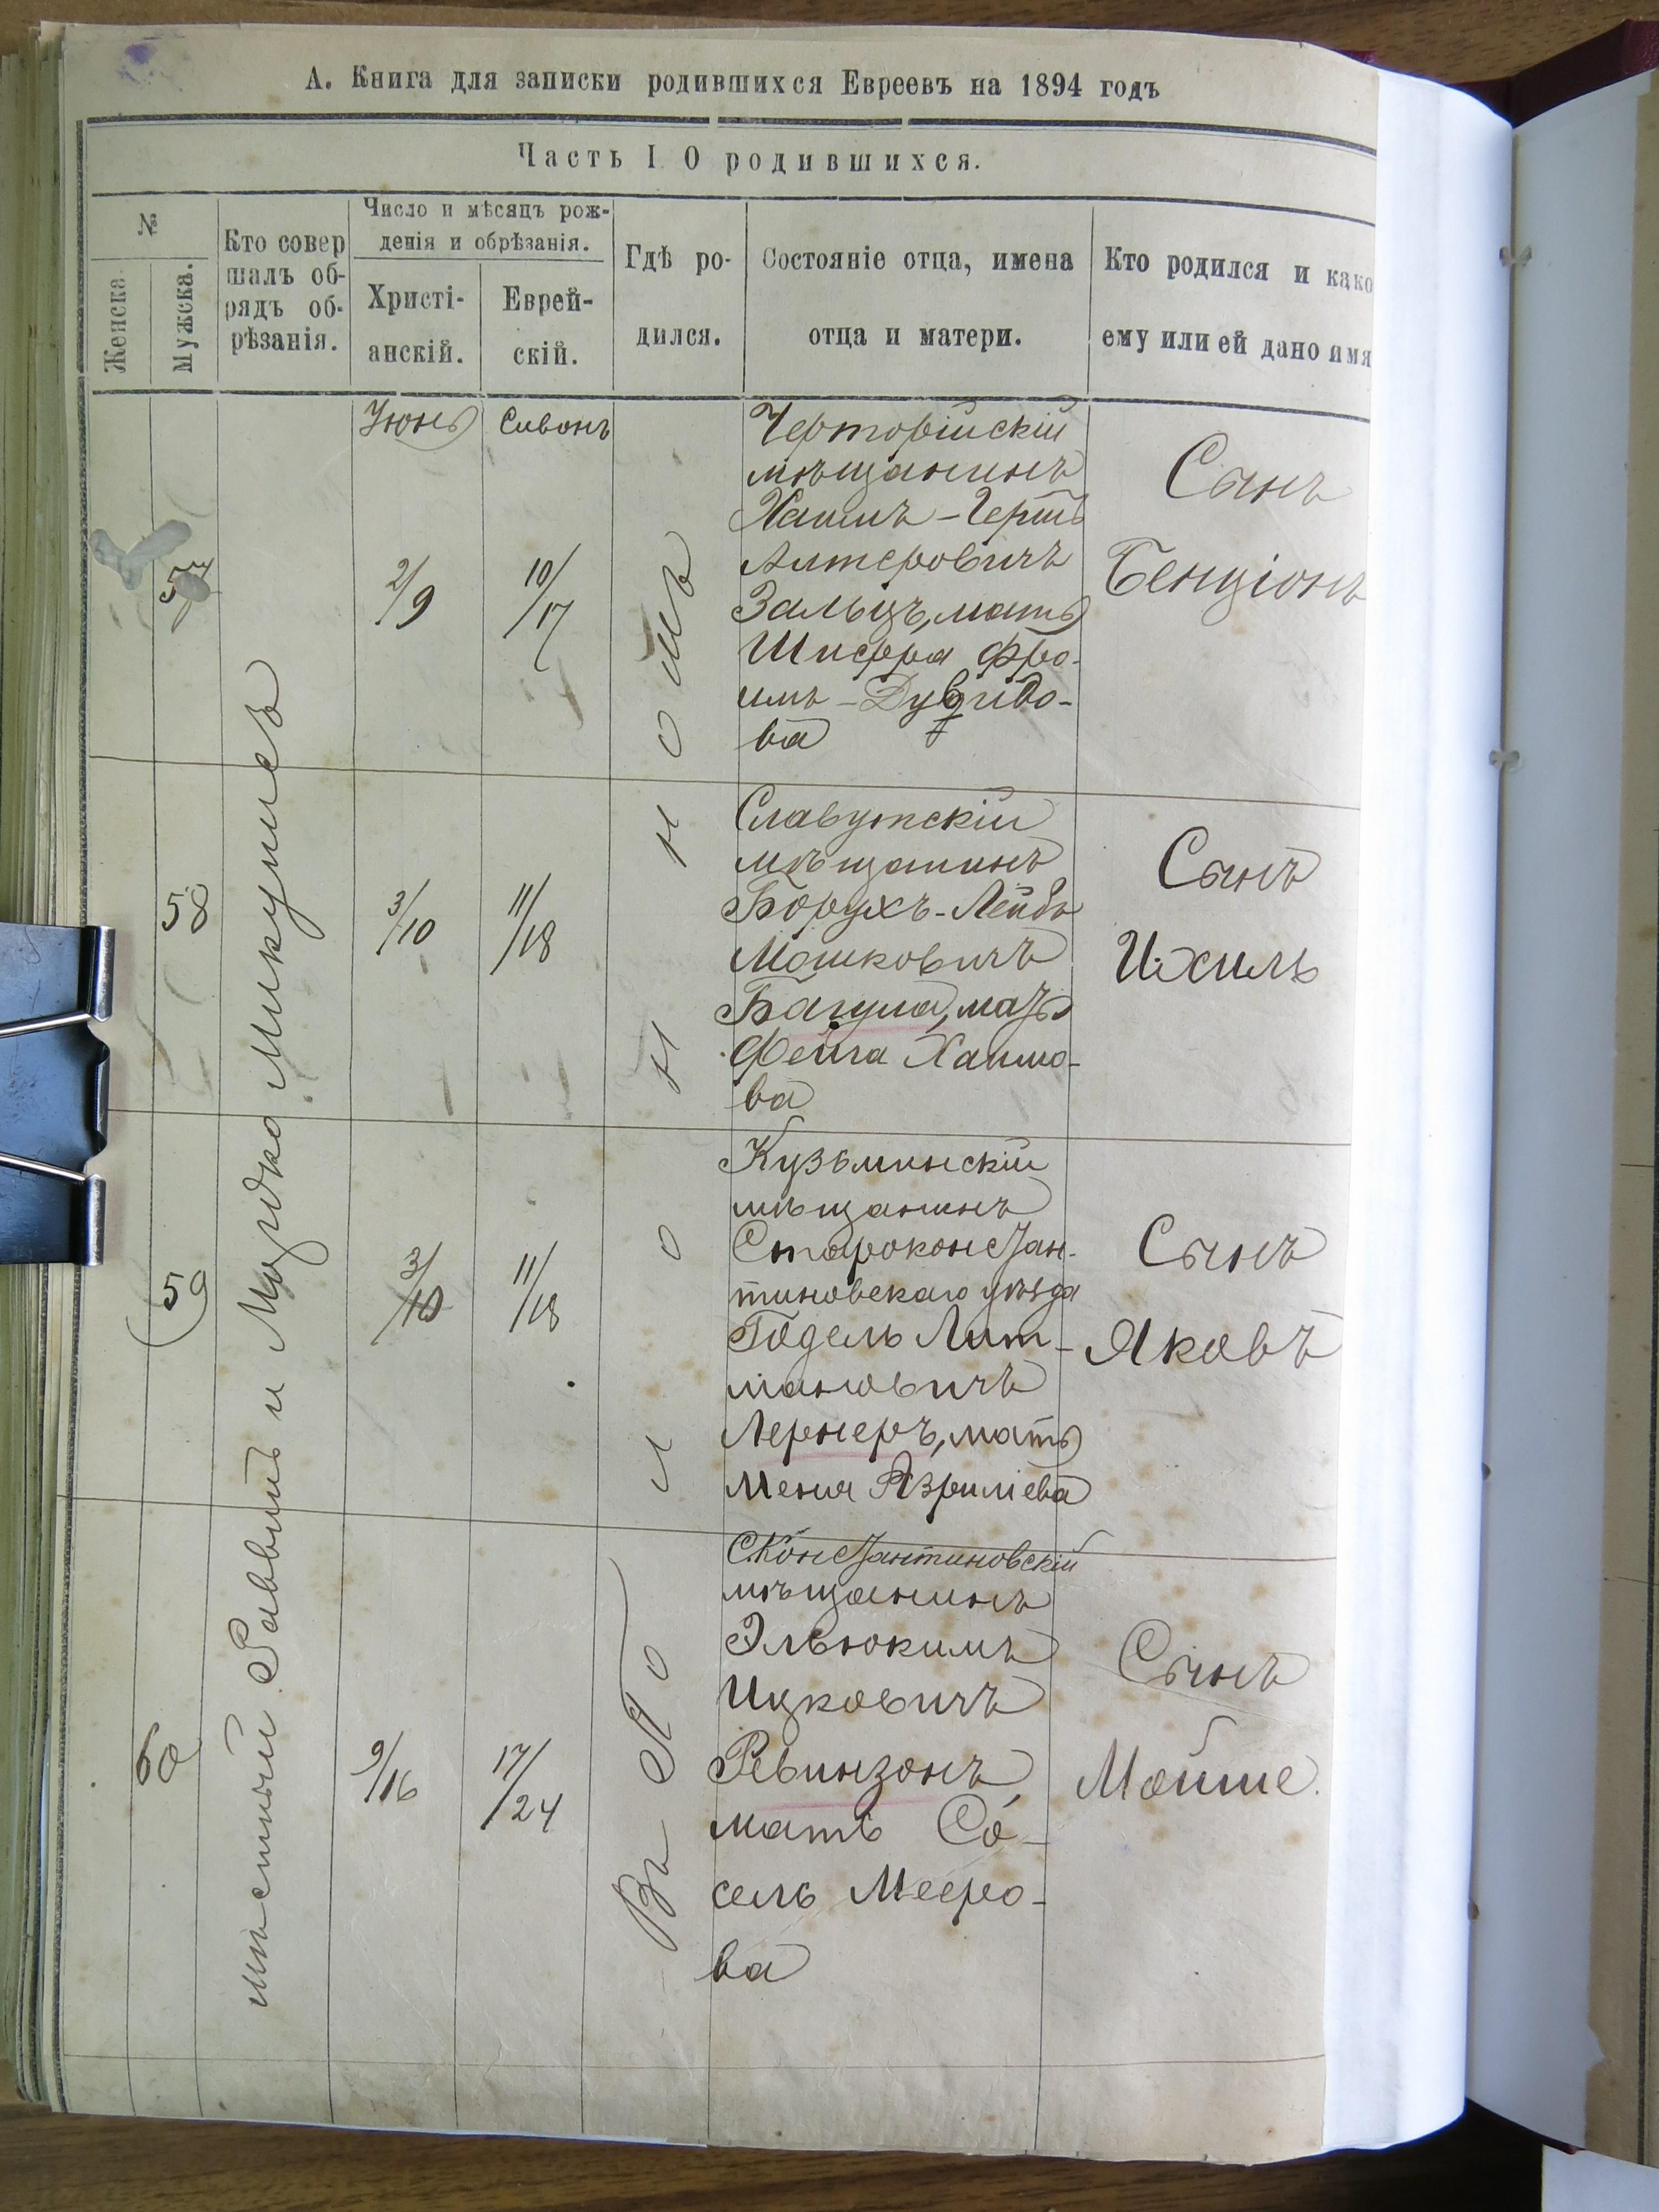 А. Книга для записки родившихся Евреевъ на 1894 годъ
Часть I О родившихся.
№
Женска
Мужска.
Кто совер
шалъ об-
рядъ об-
рѣзанія.
Число и мѣсяцъ рож-
денія и обрѣзанія.
Христі-
анскій.
Еврей-
скій.
Гдѣ ро-
дился.
Состояніе отца, имена
отца и матери.
Кто родился и како
ему или ей дано имя
мѣстный Раввинъ и Мордко Микунисъ
Въ Полонномъ
Іюнь
Сивонъ
57
2/9
10/17
Черторійскій
мѣщанинъ
Хаимъ-Гершъ
Алтеровичъ
Зальцъ, мать
Шифра Фро-
имъ-
ва
Сынъ
Бенціонъ
58
3/10
11/18
Славутскій
мѣщанинъ
Борухъ-Лейбъ
Мошковичъ
Багула, мать
Фейга Хаимо-
ва
Сынъ
Ихиль
59
3/10
11/18
Кузьминскій
мѣщанинъ
Староконстан-
тиновскаго уѣзда
Годель Лит-
мановичъ
Лернеръ, мать
Меня Азриліева
Сынъ
Яковъ
60
9/16
17/24
С.Константиновскій
мѣщанинъ
Эльюкимъ
Ицковичъ
Ревинзонъ
мать Со-
сель Мееро-
ва
Сынъ
Мойше.